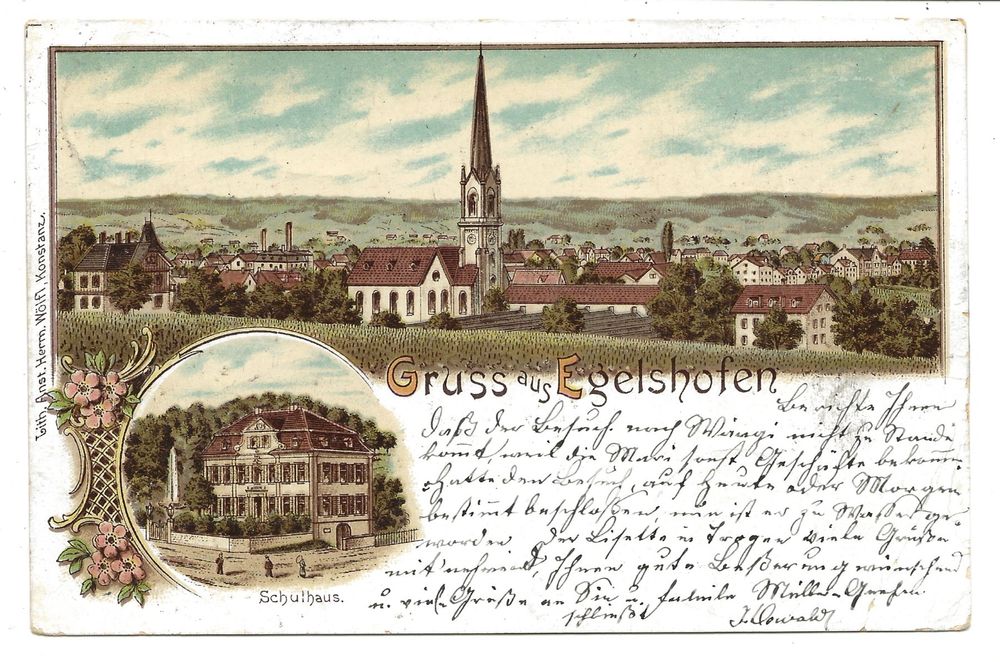 Gruss aus Egelshofen
Berichte Ihnen
daß der Besuch nach Wängi nicht zu Stande
kommt weil die Mari sonst Geschäfte bekomme
hatte den Besuch, auf Heute oder Morgen
bestimmt beschloßen, nun ist er zu Wasser ge-
worden. Der Lisette in Trogen viele Grüße
mit nehmend, Ihnen gute Beßerung wünschend
u. viele Grüße an Sie u. familie Müller-
schließt J. Oswald
Schulhaus.
Lith. Anst. Herm. Wölfl, Konstanz.